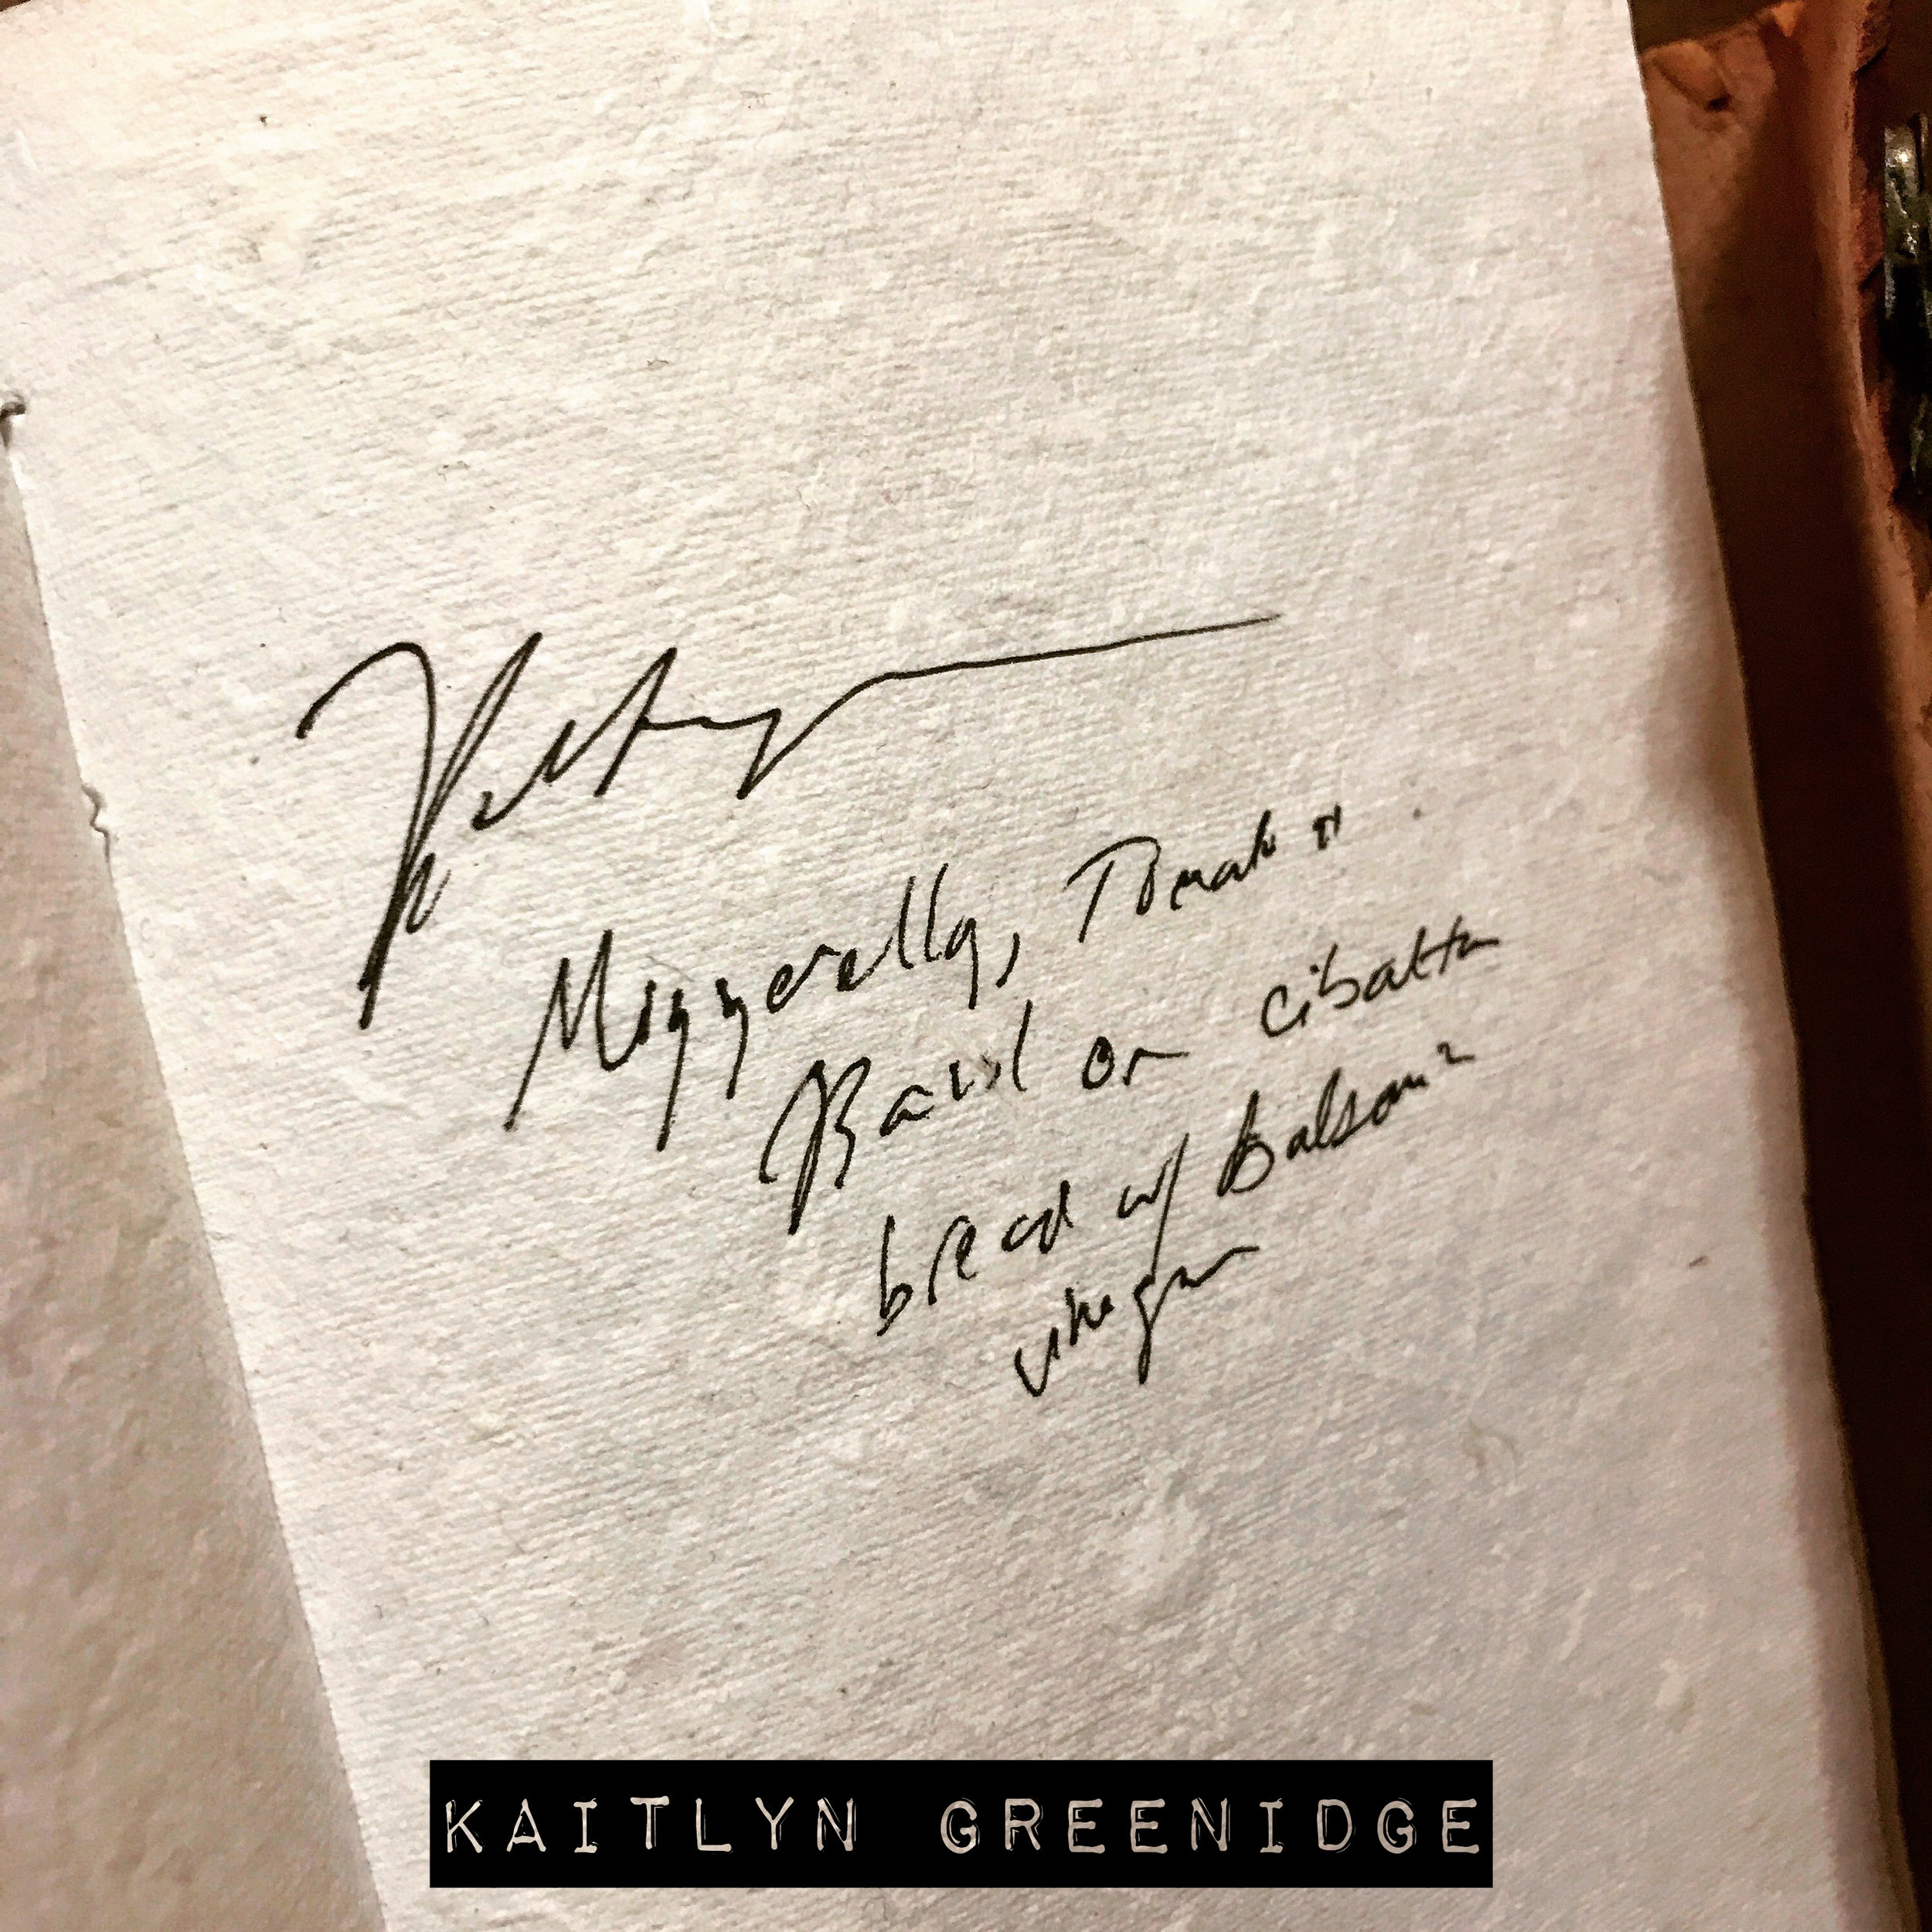 Mozzerella, Tomato
Basil on cibatta
bread w/ Balsamic
vinegar
KAITLYN GREENIDGE